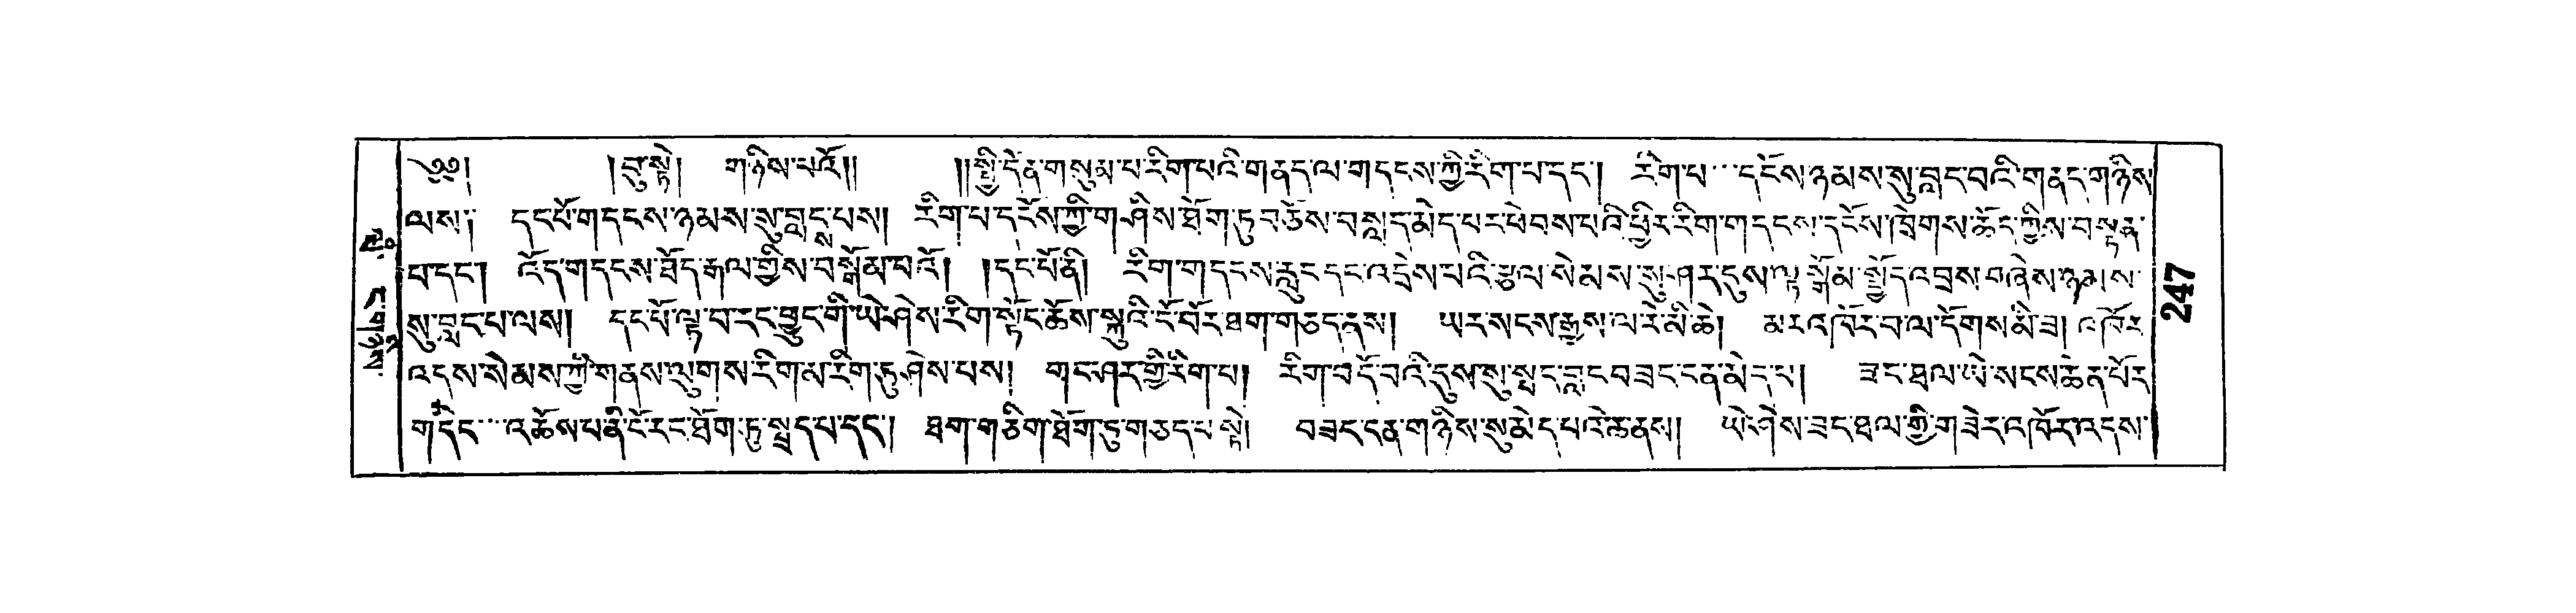 ༄༅།  །བུ་སྟེ།  གཉིས་པའོ།།  །།སྤྱི་དོན་གསུམ་པ་རིག་པའི་གནད་ལ་གདངས་ཀྱི་རིག་པ་དང་།  རིག་པ་་་དངོས་ཉམས་སུ་བླང་བའི་གནད་གཉིས་
ལས༑  དང་པོ་གདངས་ཉམས་སུ་བླང་པས།  རིག་པ་དངོས་ཀྱི་གཤིས་ཐོག་ཏུ་བཅོས་བསླད་མེད་པར་ཕེབས་པའི་ཕྱིར་རིག་གདངས་དངོས་ཁྲེགས་ཆོད་ཀྱིས་བསྟན་
པ་དང་།  འོད་གདངས་ཐོད་རྒལ་གྱིས་བསྒོམ་པའོ།  །དང་པོ་ནི།  རིག་གདངས་རླུང་དང་འདྲེས་པའི་རྩལ་སེམས་སུ་ཤར་དུས་ལྟ་སྒོམ་སྤྱོད་འབྲས་བཞེས་ཉམས་
སུ་བླང་པ་ལས།  དང་པོ་ལྟ་བ་རང་བྱུང་གི་ཡེ་ཤེས་རིག་སྟོང་ཆོས་སྐུའི་ངོ་བོར་ཐག་གཅད་ནས།  ཡར་སངས་རྒྱས་ལ་རེ་མི་ཆེ།  མར་འཁོར་བ་ལ་དོགས་མི་ཟ།  འཁོར་
འདས་སེམས་ཀྱི་གནས་ལུགས་རིག་མ་རིག་ཏུ་ཤེས་པས།  གང་ཤར་གྱི་རིག་པ།  རིག་པ་དོ་བའི་དུས་སུ་སྤང་བླང་བཟང་ངན་མེད་པ།  ཟང་ཐལ་ཡེ་སངས་ཆེན་པོར་
གདེང་་་འཆོས་པནི་ངོ་རང་ཐོག་ཏུ་སྤྲད་པ་དང་།  ཐག་གཅིག་ཐོག་ཏུ་གཅད་པ་སྟེ།  བཟང་ངན་གཉིས་སུ་མེད་པའི་ཆེནས།  ཡེ་ཤེས་ཟང་ཐལ་གྱི་གཟེར་འཁོར་འདས་
247